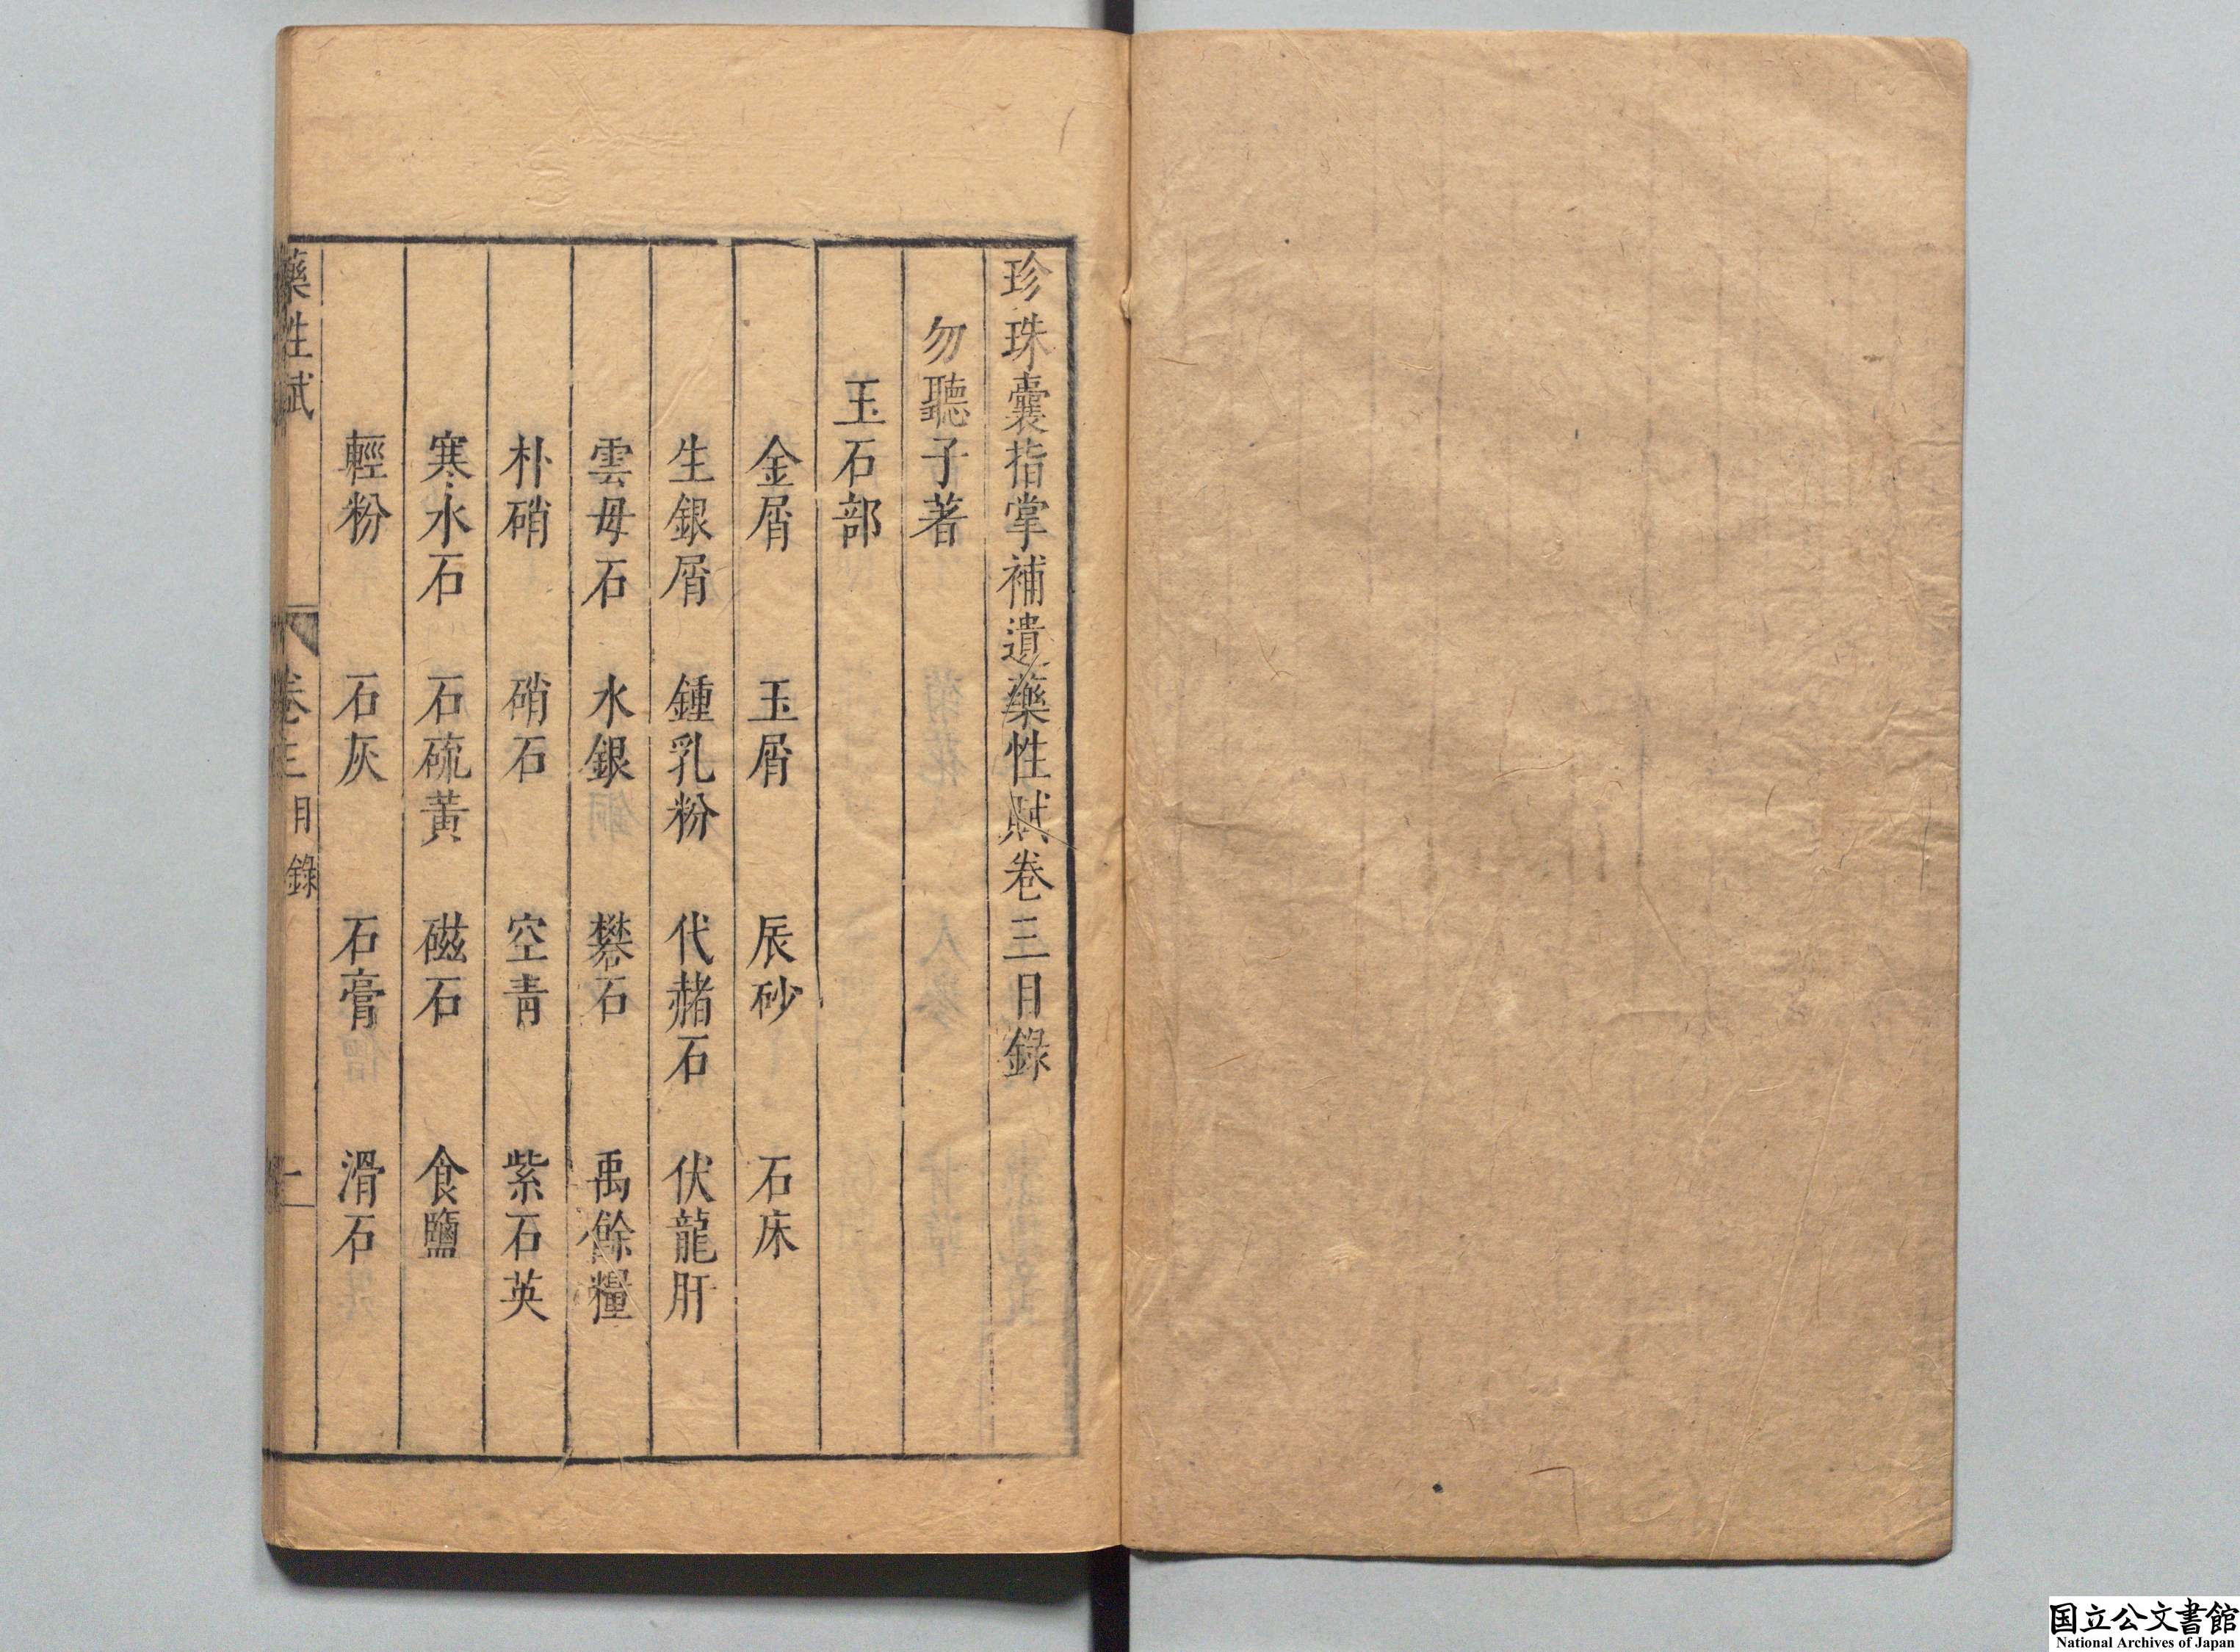 珍珠囊指掌補遺藥性賦卷三目錄
勿聽子著
玉石部
金屑　玉屑　辰砂　石床
生銀屑　鍾乳粉　代赭石　伏龍肝
雲母石　水銀　礬石　禹餘糧
朴硝　硝石　空青　紫石英
寒水石　石硫黃　磁石　食鹽
輕粉　石灰　石膏　滑石
藥性賦　卷三目錄　一
国立公文書館
National Archives of Japan